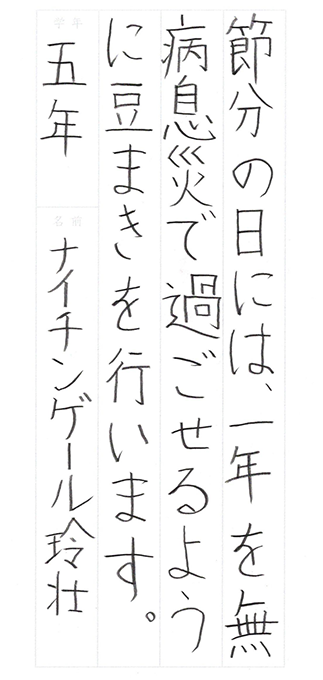 節分の日には、一年を無
病息災で過ごせるよう
に豆まきを行います。
学年
五年
名前
ナイチンゲール玲壮